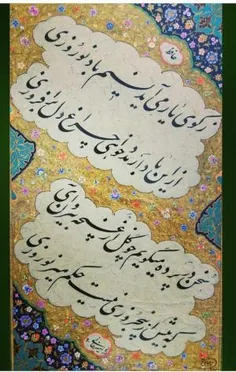 حافظ
ز کوی یار می آید نسیم باد نوروزی
از این باد ار مدد خواهی چراغ دل برافروزی
سخن در پرده میگویم چو گل از غنچه بیرون آی
که بیش از پنج روزی نیست حکم میر نوروزی